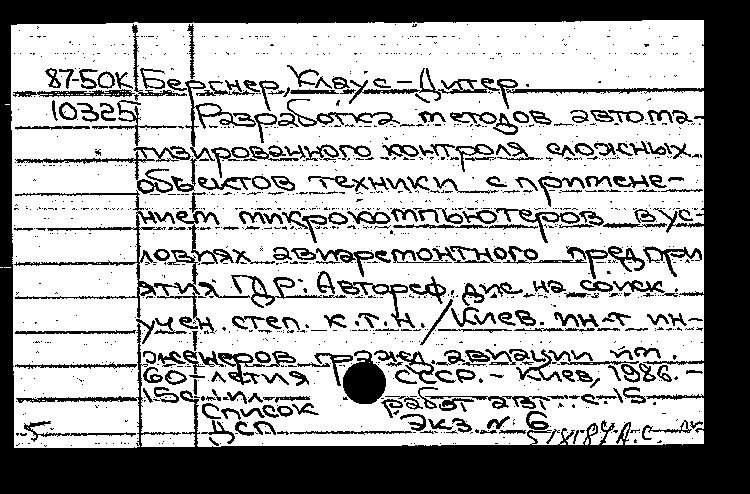 87-50К Бергнер, Клаус-Дитер.
10325 Разработка методов автома-
тизированного контроля сложных
объектов техники с примене-
нием микрокомпьютеров в ус-
ловиях авиаремонтного предпри
ятия ГДР: Автореф. дис. на соиск.
учен. степ. к.т.н. / Киев. ин-т ин-
женеров гражд. авиации им.
60-летия СССР. - Киев, 1986. -
15с. ил.
Список работ авт.: с. 15.
5 ДСП Экз. № 6